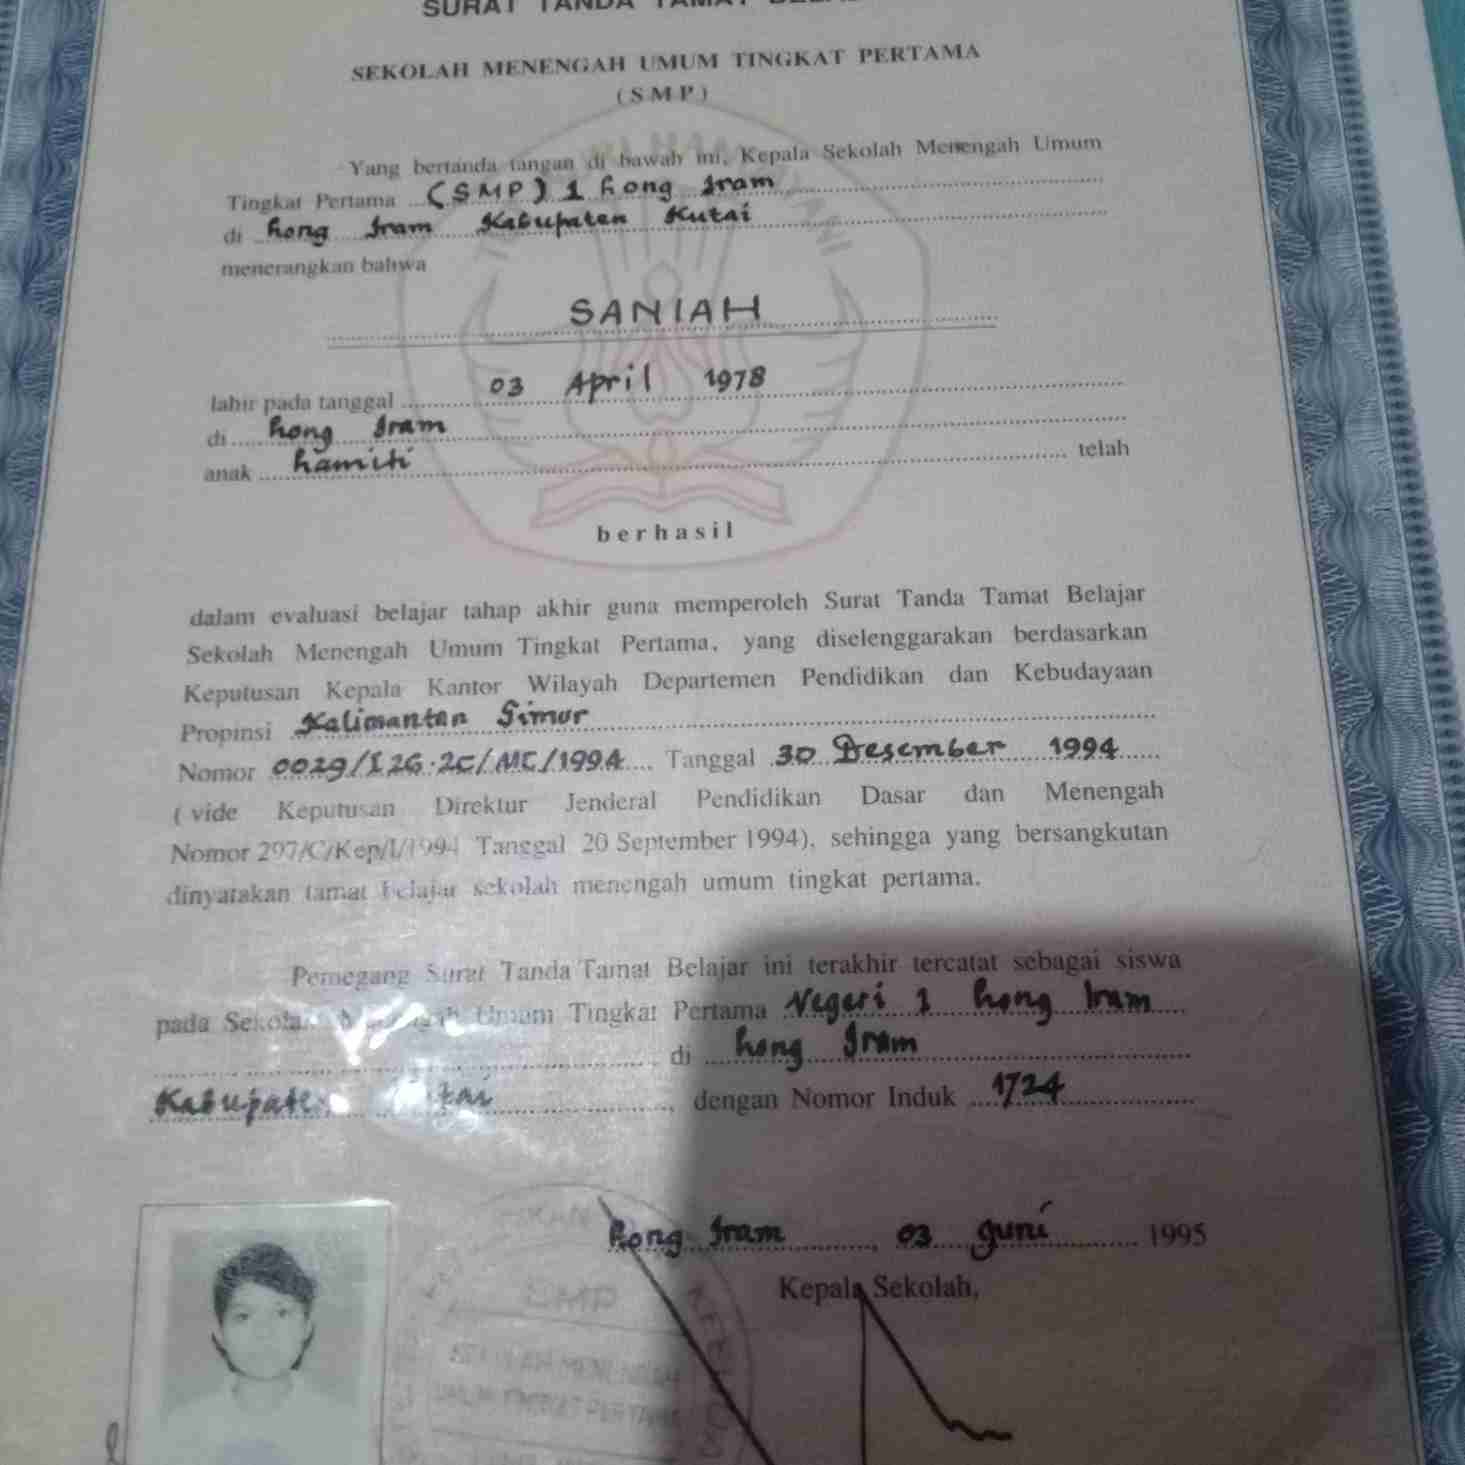 SURAT TANDA TAMAT
SEKOLAH MENENGAH UMUM TINGKAT PERTAMA
(SMP)
Yang bertanda tangan di bawah ini, Kepala Sekolah Menengah Umum
Tingkat Pertama (SMP) 1 Long Iram
di Long Iram Kabupaten Kutai
menerangkan bahwa
SANIAH
lahir pada tanggal 03 April 1978
di Long Iram
anak hamiti telah
berhasil
dalam evaluasi belajar tahap akhir guna memperoleh Surat Tanda Tamat Belajar
Sekolah Menengah Umum Tingkat Pertama, yang diselenggarakan berdasarkan
Keputusan Kepala Kantor Wilayah Departemen Pendidikan dan Kebudayaan
Propinsi Kalimantan Timur
Nomor Tanggal 30 Desember 1994
( vide Keputusan Direktur Jenderal Pendidikan Dasar dan Menengah
Nomor 297/C/Kep/I/1994 Tanggal 20 September 1994), sehingga yang bersangkutan
dinyatakan tamat belajar sekolah menengah umum tingkat pertama.
Pemegang Surat Tanda Tamat Belajar ini terakhir tercatat sebagai siswa
pada Sekolah Menengah Umum Tingkat Pertama Negeri 1 Long Iram
di Long Iram
Kabupaten Kutai, dengan Nomor Induk 1724
Long Iram, 03 Juni 1995
Kepala Sekolah,
SMP
SEKOLAH MENENGAH
UMUM TINGKAT PERTAMA